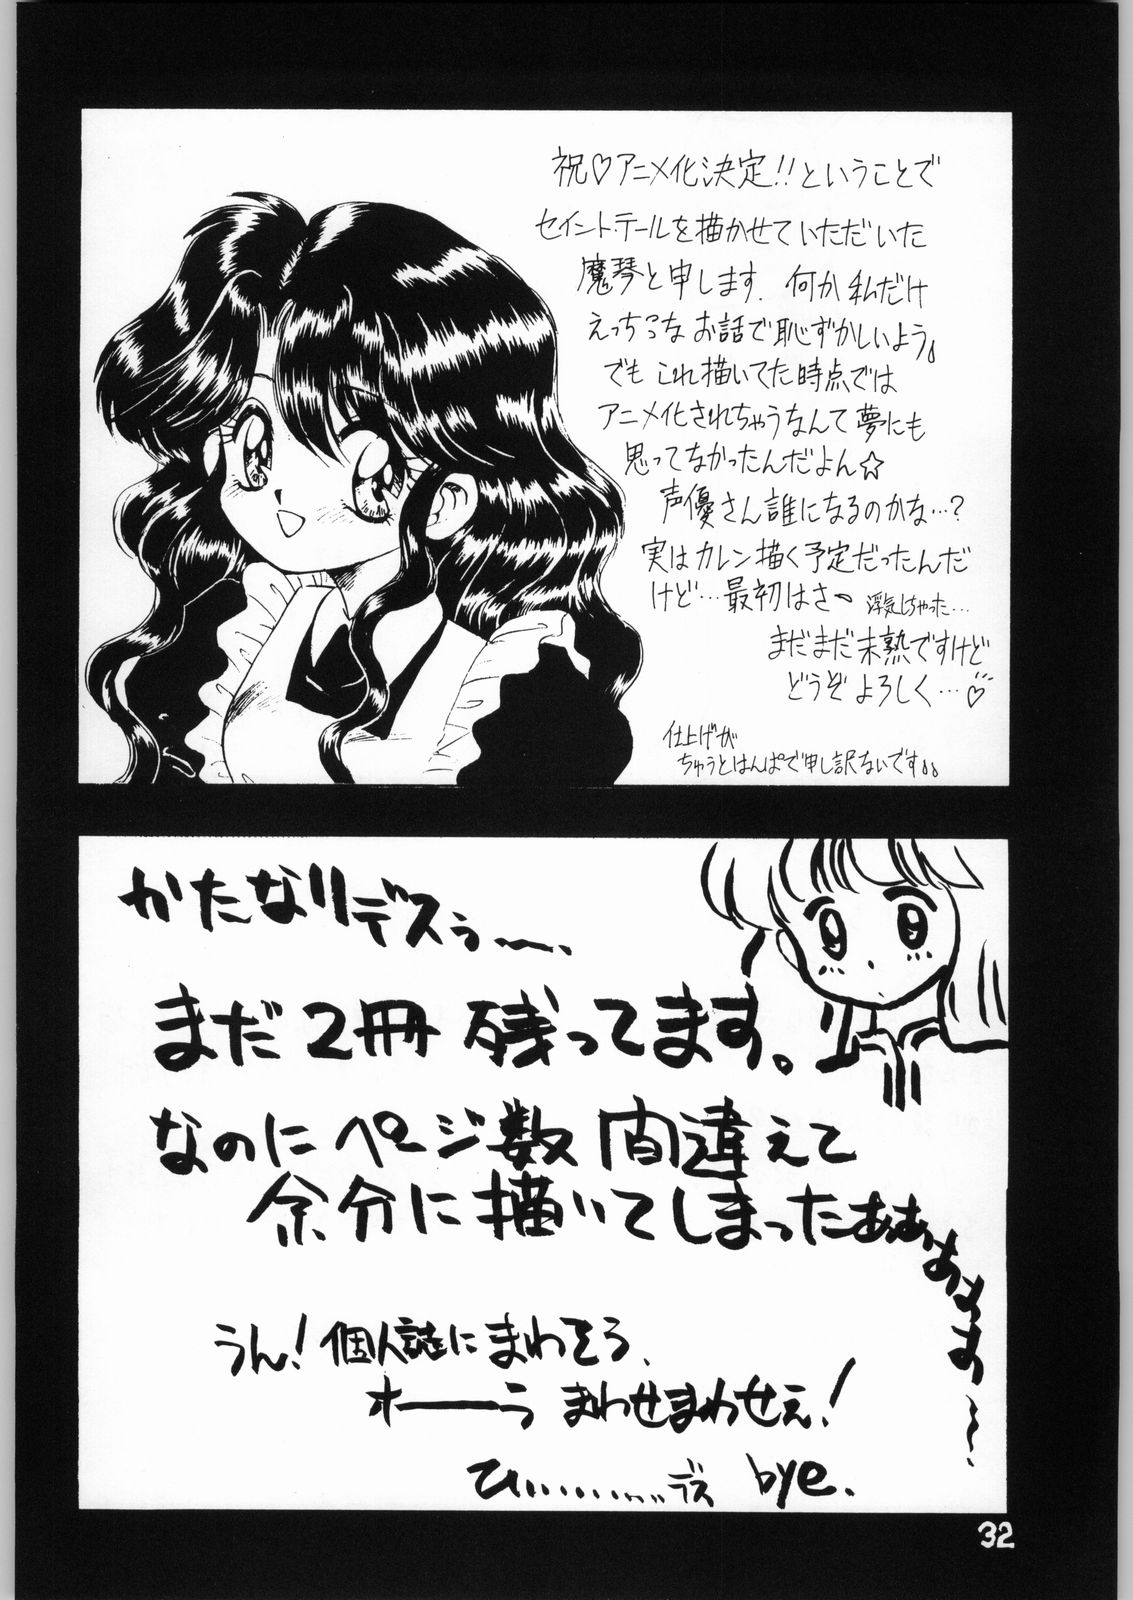 祝♡アニメ化決定!!ということで
セイントテールを描かせていただいた
魔琴と申します. 何か私だけ
えっちっな お話で恥ずかしいよう
でも これ描いてた時点では
アニメ化されちゃうなんて夢にも
思ってなかったんだよん☆
声優さん誰になるのかな…?
実はカレン描く予定だったんだ
けど…最初はさ〜 浮気しちゃった…
まだまだ未熟ですけど
どうぞ よろしく…♡
仕上げが
ちゅうとはんぱで申し訳ないです
かたなりデスぅ〜、
まだ2冊 残ってます。
なのにページ数 間違えて
余分に描いてしまったぁぁぁぁぁ〜〜
うん!個人誌にまわそう、
オーーーう まわせまわせぇ!
ひ………デス bye.
32